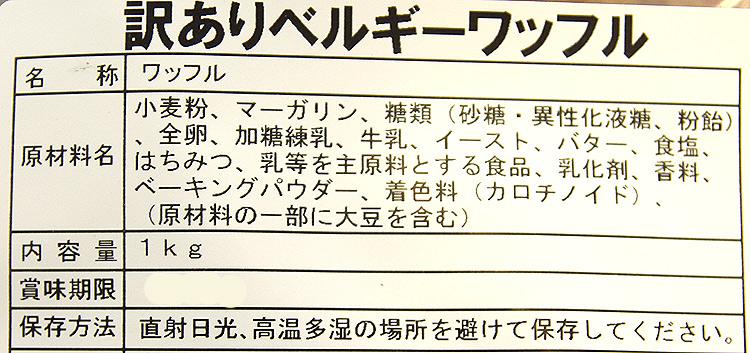 訳ありベルギーワッフル
名 称 ワッフル
原材料名 小麦粉、マーガリン、糖類（砂糖・異性化液糖、粉飴）
、全卵、加糖練乳、牛乳、イースト、バター、食塩、
はちみつ、乳等を主原料とする食品、乳化剤、香料、
ベーキングパウダー、着色料（カロチノイド）、
（原材料の一部に大豆を含む）
内 容 量 1kg
賞味期限
保存方法 直射日光、高温多湿の場所を避けて保存してください。